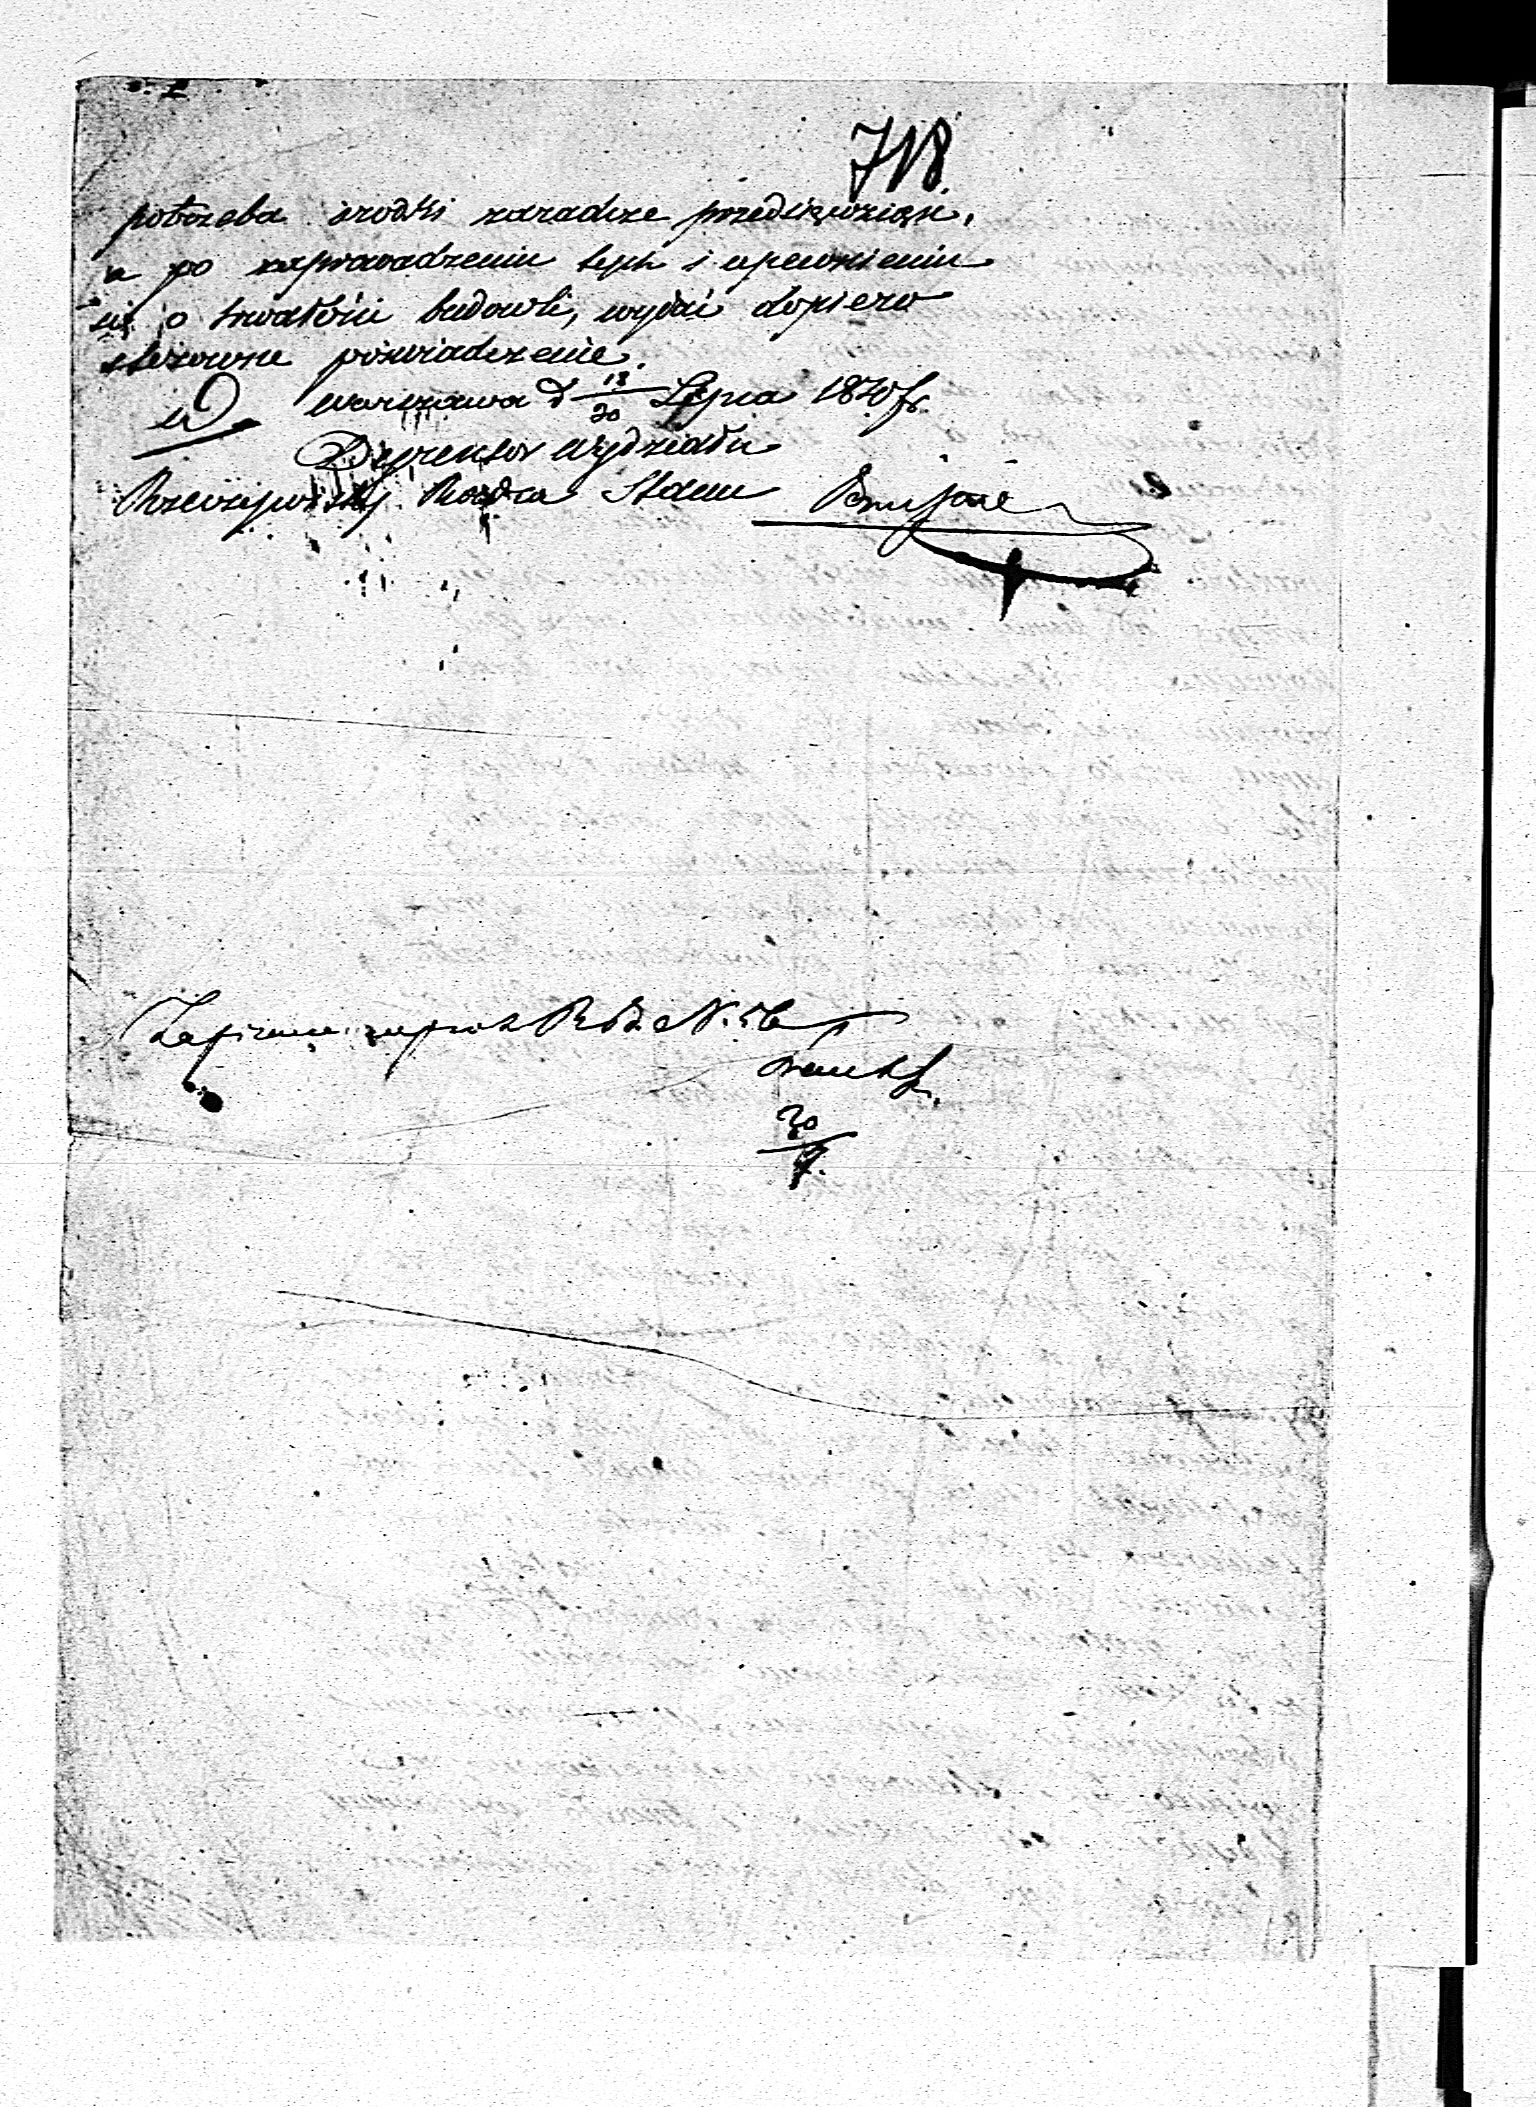 718.
potrzeba srodki zaradcze przedsięwziąść,
a po zaprowadzeniu tych i upewnieniu
się o trwałości budowli, wydać dopiero
stosowne poświadczenie.
Warszawa d 18/30 Lipca 1840 r.
Dyrektor Wydziału
Rzeczywisty Radca Stanu
Zapisano
30/7.